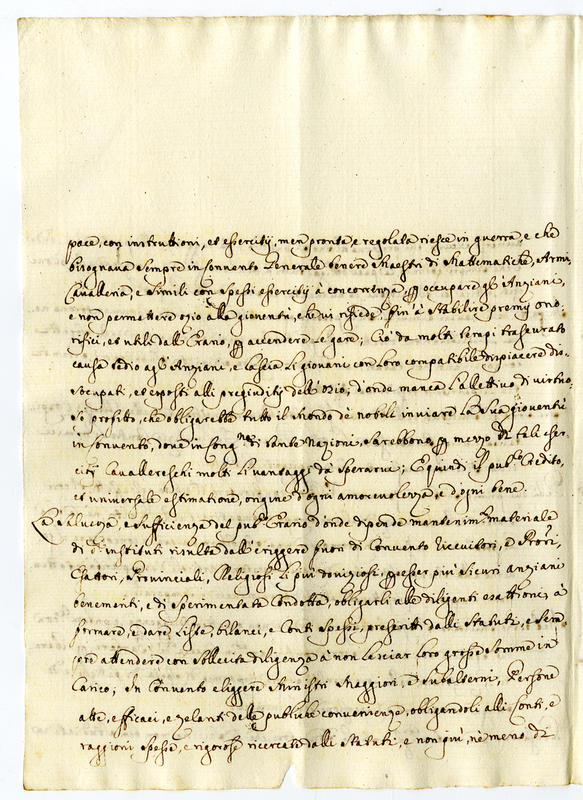 pace, con instruttioni, et essercitij, men pronta, e regolata riesce in guerra, e che
bisognava sempre in Convento Generale tenere Maestri di Mattematiche, Armi,
Cavalleria, e simili con spessi essercitij à concorrenza, p occupare gl'Anziani,
e non permettere ozio alla gioventù, che vi risiede, fin' à stabilire premij ono-
rifici, et utili dall'Erario, p accendere le gare; Ciò da molti tempi trascurato
causa tedio agl'Anziani, e lascia li giovani con loro compatibile dispiacere dis-
occupati, et esposti alli pregiuditij dell'ozio; d'onde manca l'allettivo di virtuo-
so profitto, che obligarebbe tutto il Mondo de nobili inviare la sua gioventù
in Convento, dove in di tante Nazioni sarebbono p mezzo di tali eser-
citij Cavallereschi molti li vantaggi da sperarne; E quindi il pub.co Credito,
et universale estimatione, origine d'ogni amorevolezza, e d'ogni bene.
La e sufficienza del pub.co Erario d'onde dipende mantenim.to materiale
di instituti risulta dall'eriggere fuori di Convento Ricevitori, e Prori,
Provinciali, Religiosi li più doviziosi, p esser più sicuri anziani
benemeriti, e di sperimentata Condotta, obligarli alle diligenti esattione, à
formare, e dare Liste, bilanci, e Conti spessi, prescritti dalli Statuti, e sem-
pre attendere con sollecita diligenza à non lasciar loro grosse somme in
Carico; In Convento eliggere Ministri Maggiori, e Subalterni, Persone
atte, efficaci, e zelanti delle publiche convenienze, obligandoli alli Conti, e
raggioni spesse, e rigorose ricercate dalli Statuti, e non più, ne meno di